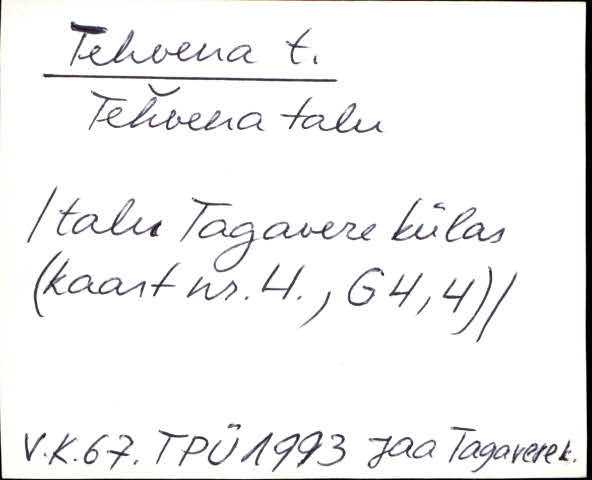 Tehvena t.
Teh̆vena talu
/talu Tagavere külas
(kaart nr. 4., G4,4)/
V.K.67. TPÜ 1993 Jaa Tagavere k.